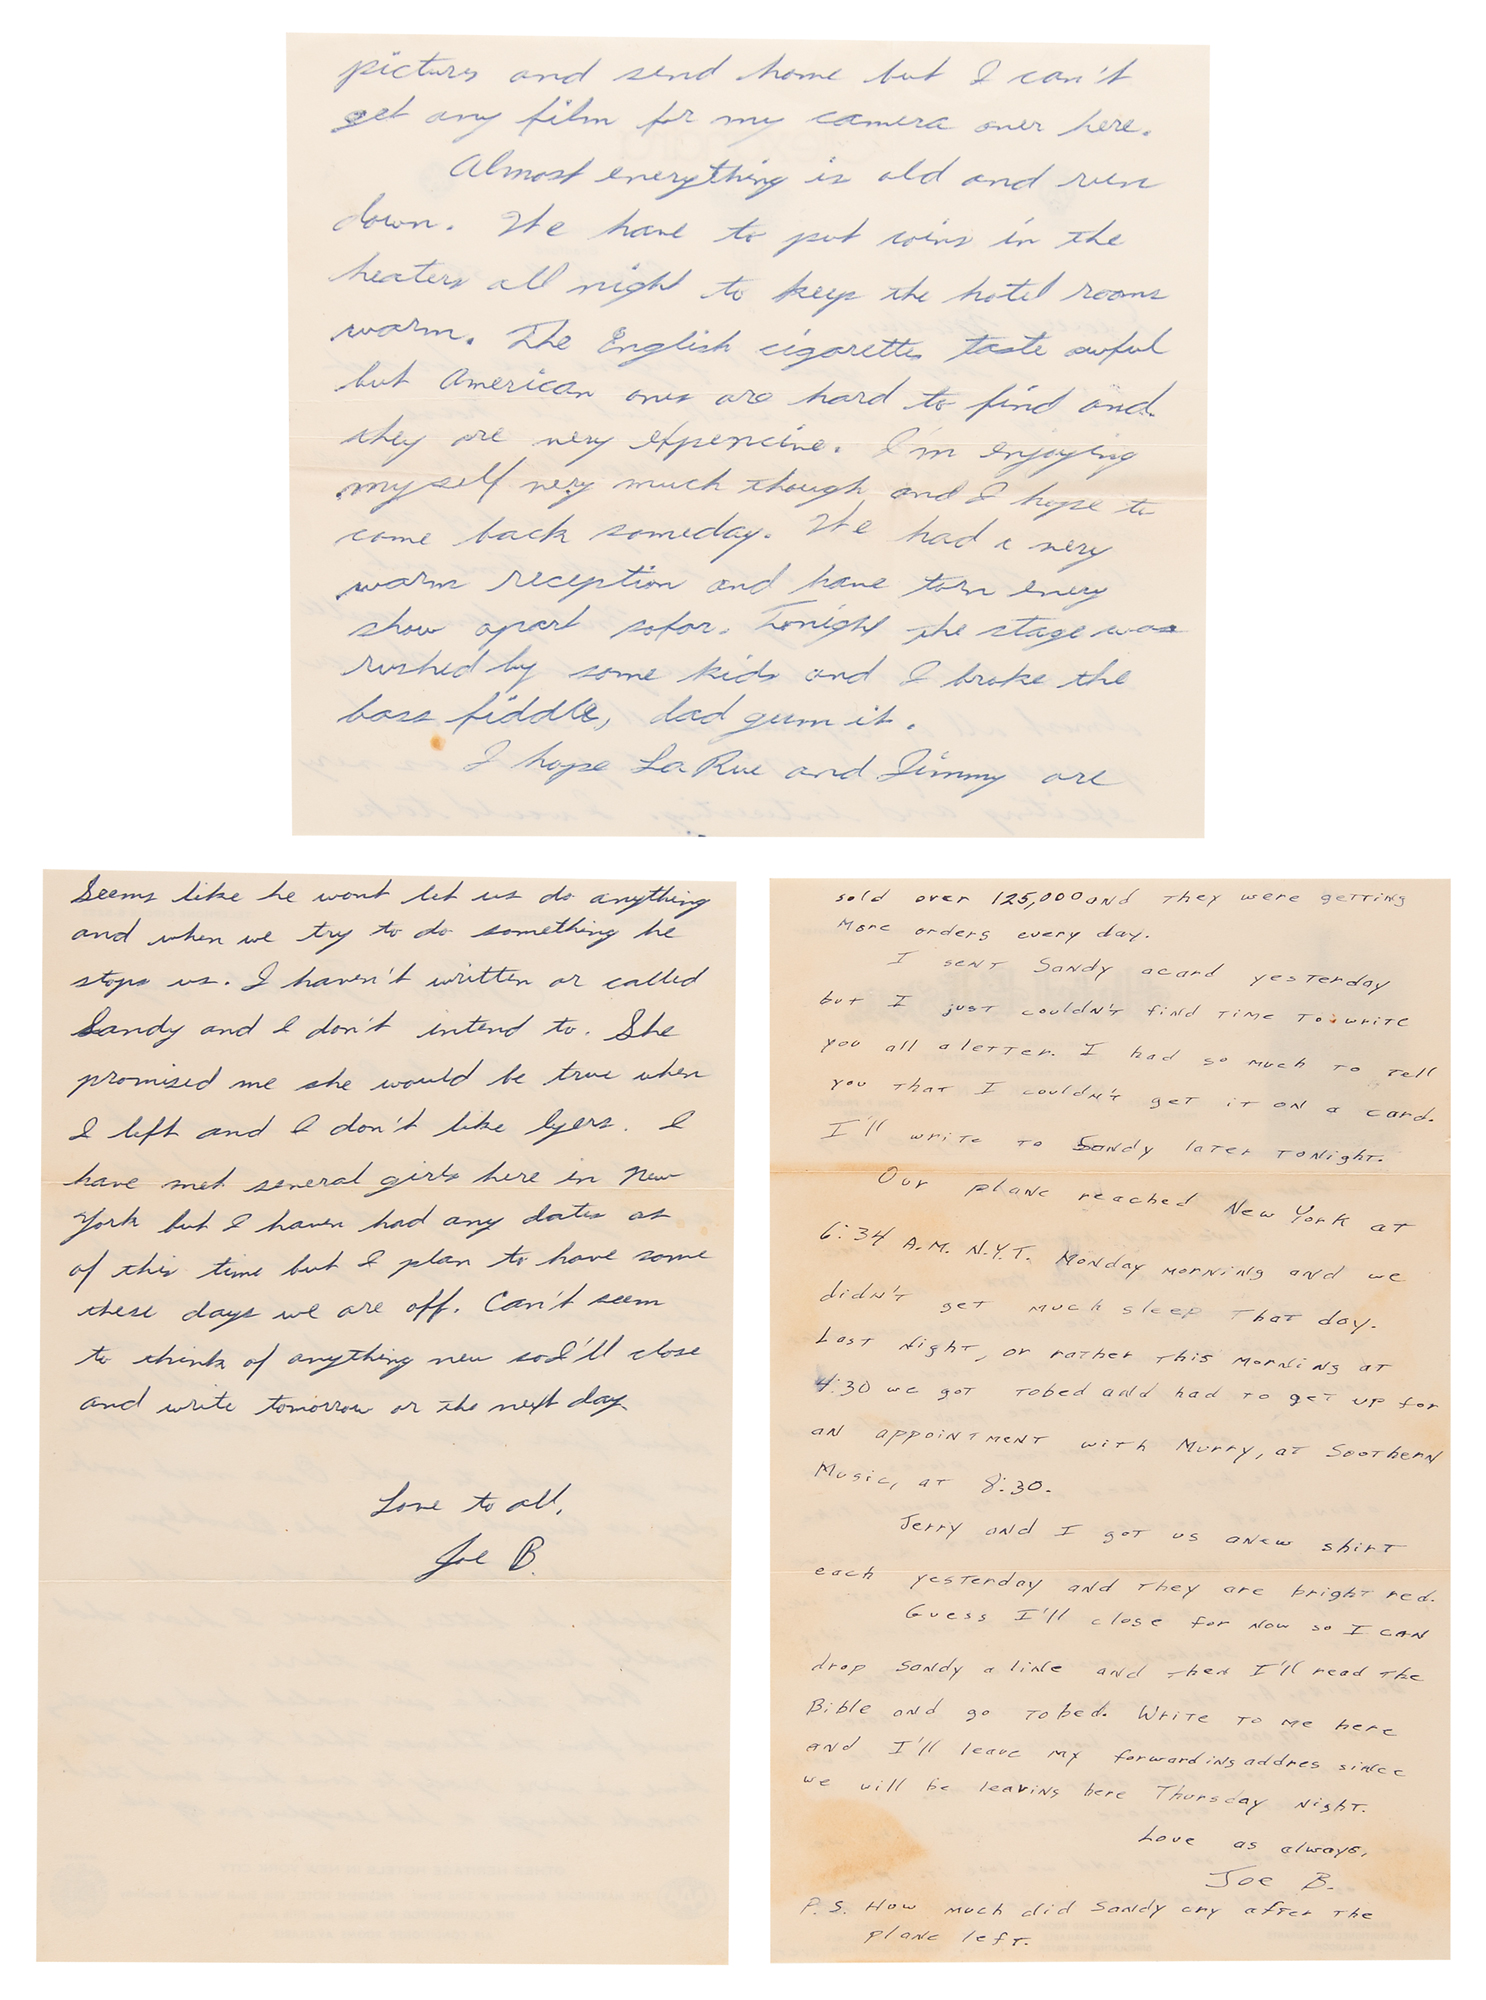 pictures and send home but I can't
get any film for my camera over here.
Almost everything is old and run
down. We have to put coins in the
heaters all night to keep the hotel rooms
warm. The English cigarettes taste awful
but American ones are hard to find and
they are very expencive. I'm enjoying
myself very much though and I hope to
come back someday. We had a very
warm reception and have torn every
show apart sofar. Tonight the stage was
rushed by some kids and I broke the
bass fiddle, dad gum it.
I hope La Rue and Jimmy are
Seems like he wont let us do anything
and when we try to do something he
stops us. I haven't written or called
Sandy and I don't intend to. She
promised me she would be true when
I left and I don't like lyers. I
have met several girls here in New
York but I haven had any dates as
of this time but I plan to have some
these days we are off. Can't seem
to think of anything new so I'll close
and write tomorrow or the next day.
Love to all,
Joe B.
sold over 125,000 and they were getting
more orders every day.
I sent Sandy a card yesterday
but I just couldn't find time to write
you all a letter. I had so much to tell
you that I couldn't get it on a card.
I'll write to Sandy later tonight.
Our plane reached New York at
6:34 A.M. N.Y.T. Monday morning and we
didn't get much sleep that day.
Last night, or rather this morning at
4:30 we got tobed and had to get up for
an appointment with Murry, at Soothern
Music, at 8:30.
Jerry and I got us a new shirt
each yesterday and they are bright red.
Guess I'll close for now so I can
drop Sandy a line and then I'll read the
Bible and go tobed. Write to me here
and I'll leave my forwarding addres since
we will be leaving here Thursday night.
Love as always,
Joe B.
P.S. How much did Sandy cry after the
plane left.